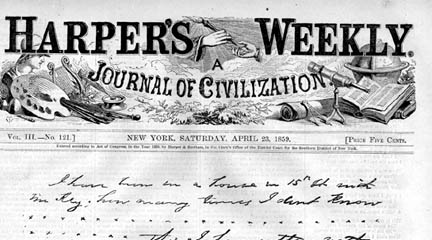 HARPER'S WEEKLY.
A
JOURNAL OF CIVILIZATION
VOL. III.—No. 121.] NEW YORK, SATURDAY, APRIL 23, 1859. [PRICE FIVE CENTS.
Entered according to Act of Congress, in the Year 1859, by Harper & Brothers, in the Clerk's Office of the District Court for the Southern District of New York.
I have been in a house in 15th St with
Mr Key; how many times I dont know